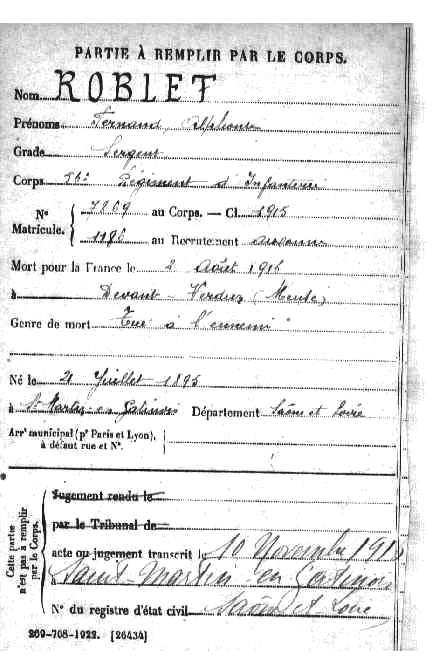 PARTIE À REMPLIR PAR LE CORPS.
Nom ROBLET
Prénoms Fernand Alphonse
Grade Sergent
Corps 56e Régiment d'Infanterie
N° Matricule. 7869 au Corps. — Cl. 1915
1186 au Recrutement Auxonne
Mort pour la France le 2 Août 1916
à Devant Verdun (Meuse)
Genre de mort Tué à l'ennemi
Né le 21 Juillet 1895
à St Martin-en-Gatinois Département Saône et Loire
Arr' municipal (p' Paris et Lyon),
à défaut rue et N°.
Cette partie n'est pas à remplir par le Corps.
Jugement rendu le
par le Tribunal de
acte ou jugement transcrit le 10 Novembre
Saint-Martin-en-Gatinois
N° du registre d'état civil Saône et Loire
269-708-1922. [26434]